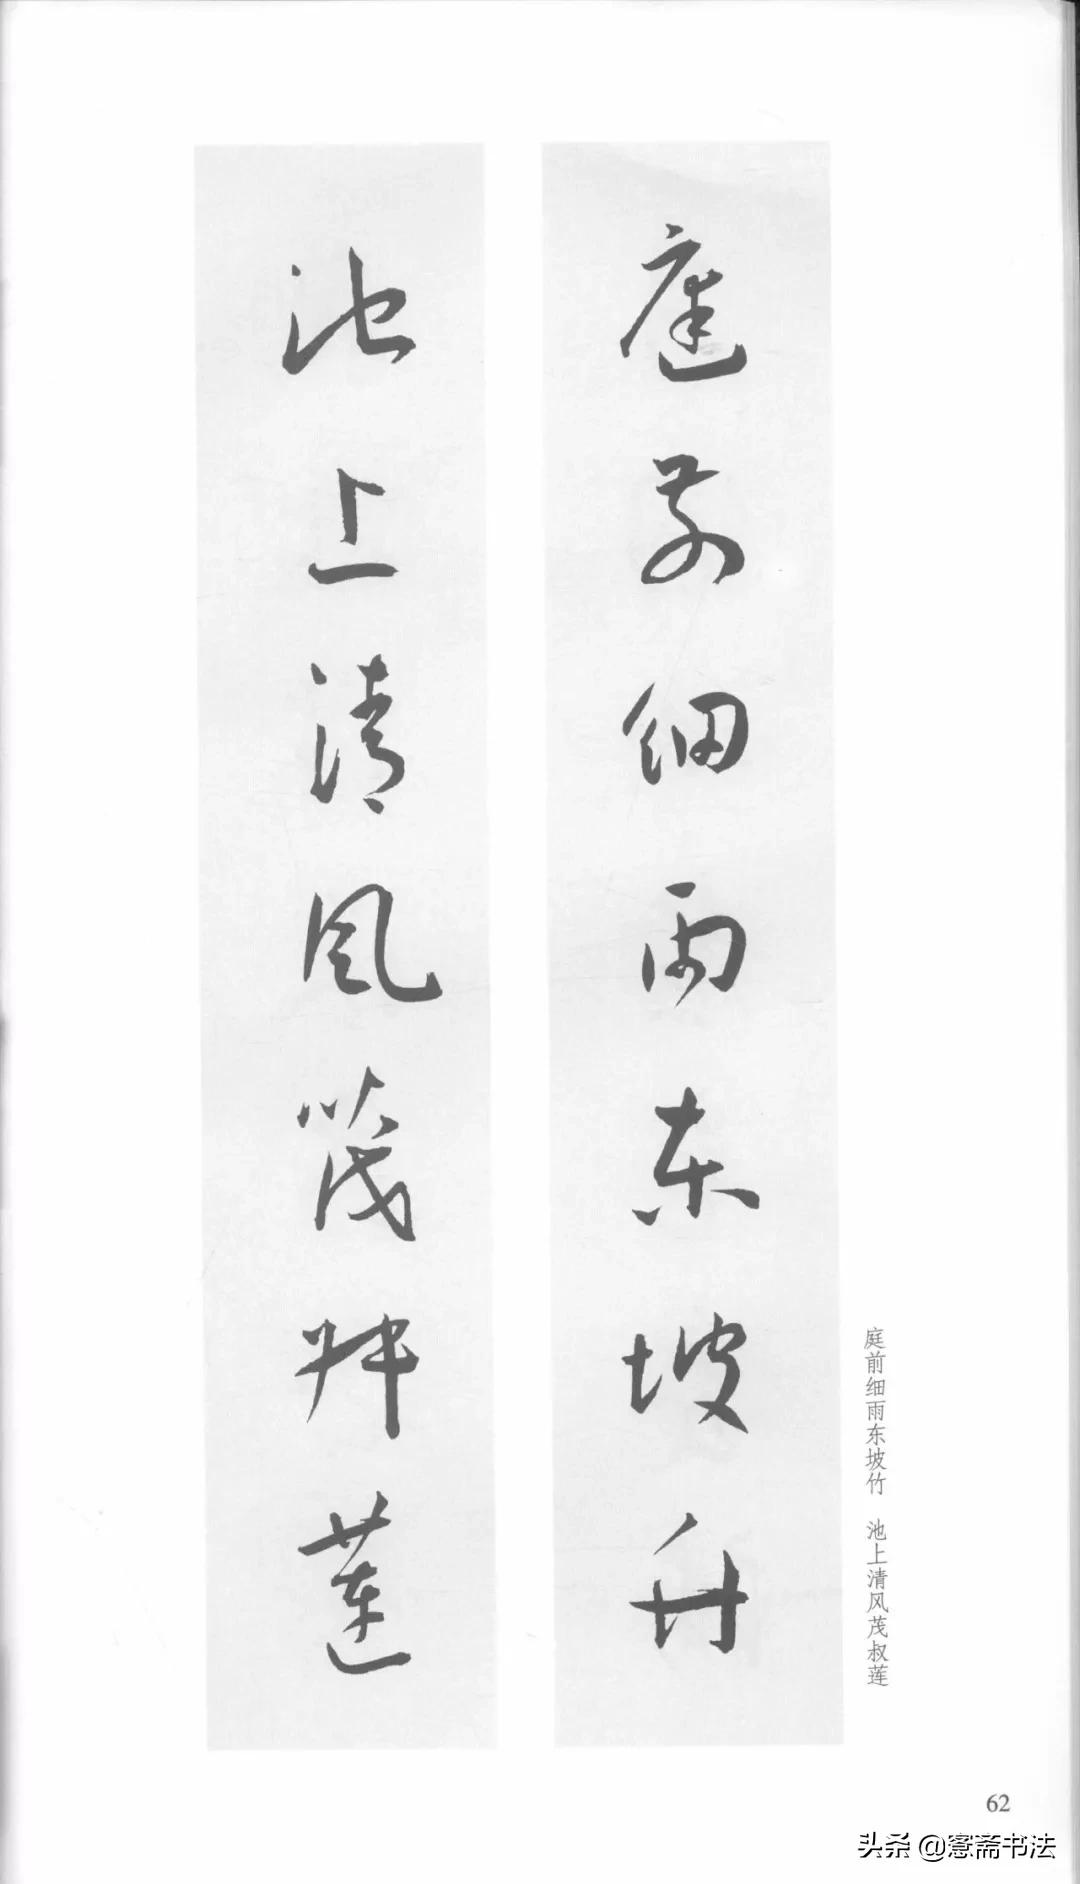 庭前细雨东坡竹
池上清风茂叔莲
庭前细雨东坡竹 池上清风茂叔莲
62
头条@窓斋书法